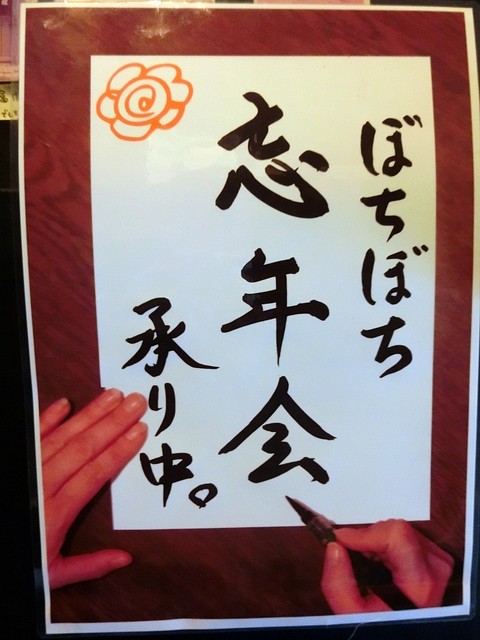 ぼちぼち
忘年会
承り中。